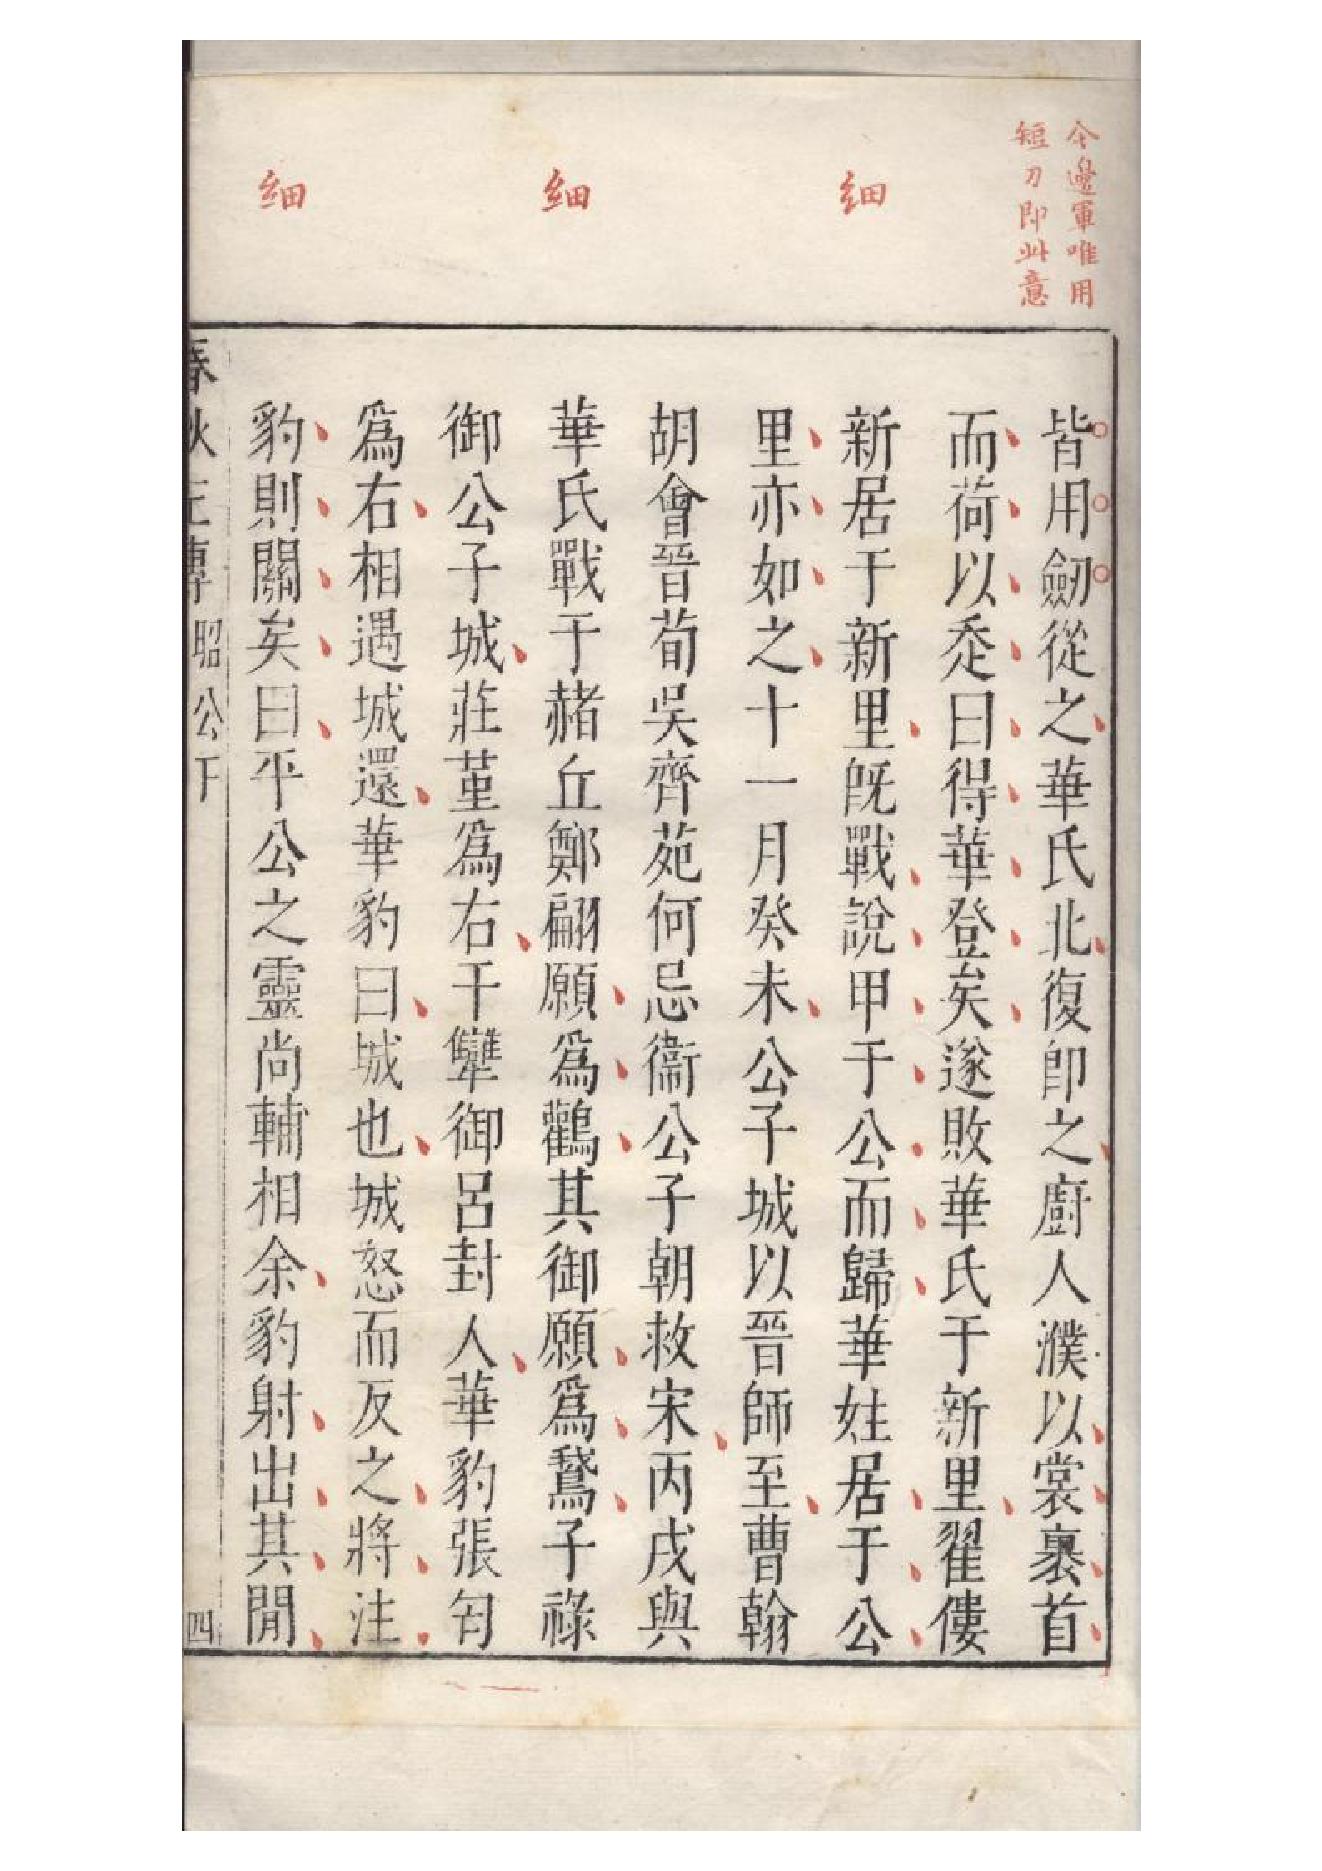 今邊軍唯用
短刀即此意
細
細
細
皆用劒從之華氏北復卽之廚人濮以裳裹首
而荷以走曰得華登矣遂敗華氏于新里翟僂
新居于新里旣戰說甲于公而歸華姓居于公
里亦如之十一月癸未公子城以晉師至曹翰
胡會晉荀吳齊苑何忌衞公子朝救宋丙戌與
華氏戰于赭丘鄭翩願爲鸛其御願爲鵞子祿
御公子城莊堇爲右干犨御呂封人華豹張匄
爲右相遇城還華豹曰城也城怒而反之將注
豹則關矣曰平公之靈尚輔相余豹射出其閒
春秋左傳 昭公下 四